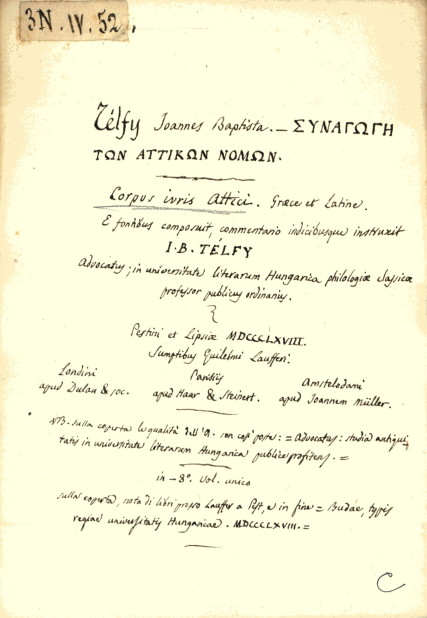 3N. IV. 52.
Télfy Joannes Baptista. _ ΣΥΝΑΓΩΓΗ
ΤΩΝ ΑΤΤΙΚΩΝ ΝΟΜΩΝ.
Corpus iuris Attici. Græce et Latine.
E fontibus composuit, commentario indicibusque instruxit
I. B. TÉLFY
Advocatus; in universitate literarum Hungarica philologiæ classicæ
professor publicus ordinarius.
Pestini et Lipsiæ MDCCCLXVIII.
Sumptibus Guilelmi Lauferi.
Londini Parisiis Amstelodami
apud Dulau & soc. apud Haar & Steinert. apud Joannem Müller.
NB. sulla coperta le qualità dell'A. son così poste: = Advocatus: studia antiqui
tatis in universitate literarum Hungarica publice profitens. =
in - 8°. Vol. unico
sulla coperta, nota di libri presso Lauffer a Pest, e in fine = Budae, typis
regiae universitatis Hungaricae. MDCCCLXVIII. =
C